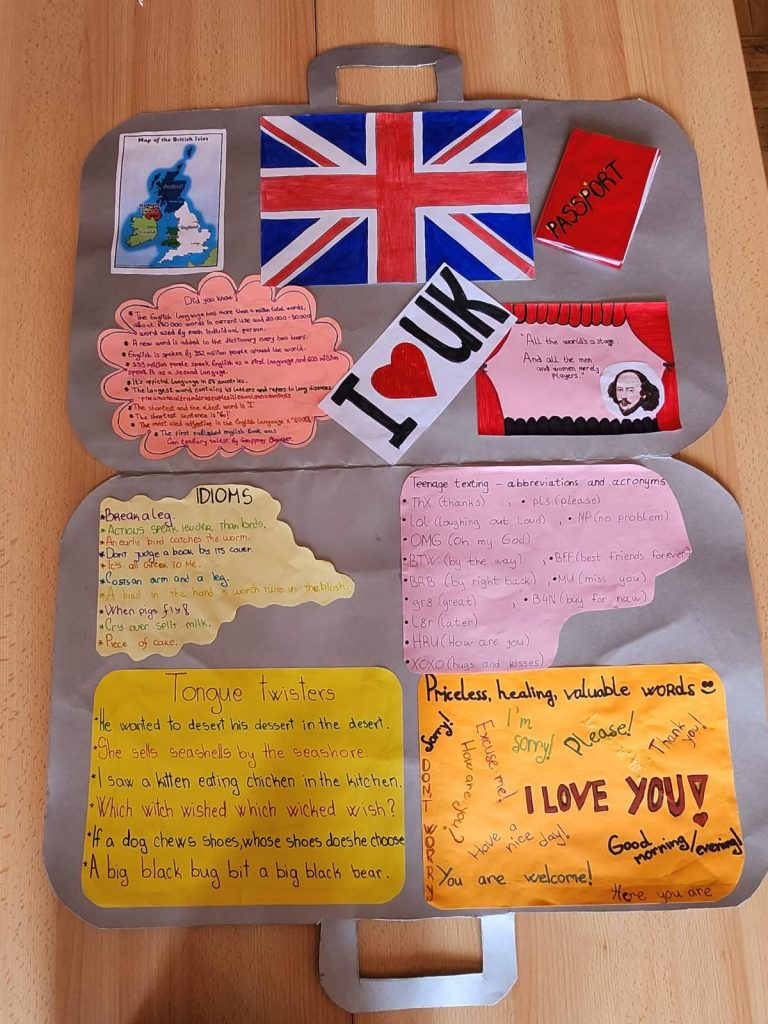 Map of the British Isles
PASSPORT
Did you know?
* The English Language has more than a million total words,
about 170 000 words in current use and 20 000 - 30 000
word used by each individual person.
* A new word is added to the dictionary every two hours.
* English is spoken by 352 million people around the world.
* 339 million people speak English as a first language, and 603 million
speak it as a second language.
* It's official language in 54 countries.
* The longest word containing 45 letters and refers to lung diseases
* The shortest and the oldest word is I
* The shortest sentence is "Go!"
* The most used adjective in the English Language is "GOOD"
* The first published english book was
I ♥ UK
"All the world's a stage,
And all the men
and women merely
players."
IDIOMS
* Break a leg.
* Actions speak leuder than lords.
* An early bird catches the worm.
* Don't judge a book by its cover.
* It's all Greek to me.
* Costs an arm and a leg.
* A bird in the hand is worth two in the bush.
* When pigs fly!
* Cry over spilt milk.
* Piece of cake.
Teenage texting - abbreviations and acronyms
• Thx (thanks) , • pls (please)
• Lol (laughing out loud) , • NP (no problem)
• OMG (Oh my God)
• BTW (by the way) , • BFF (best friends forever)
• BRB (by right back) , • MU (miss you)
• gr8 (great) , • B4N (buy for now)
• L8r (later)
• HRU (How are you)
• XOXO (hugs and kisses)
Tongue twisters
* He wanted to desert his dessert in the desert.
* She sells seashells by the seashore.
* I saw a kitten eating chicken in the kitchen.
* Which witch wished which wicked wish?
* If a dog chews shoes, whose shoes does he choose
* A big black bug bit a big black bear.
Priceless, healing, valuable words
Sorry!
Excuse me!
I'm sorry!
Please!
Thank you!
How are you?
DON'T WORRY
I LOVE YOU!
Have a nice day!
Good morning/evening!
You are welcome!
Here you are